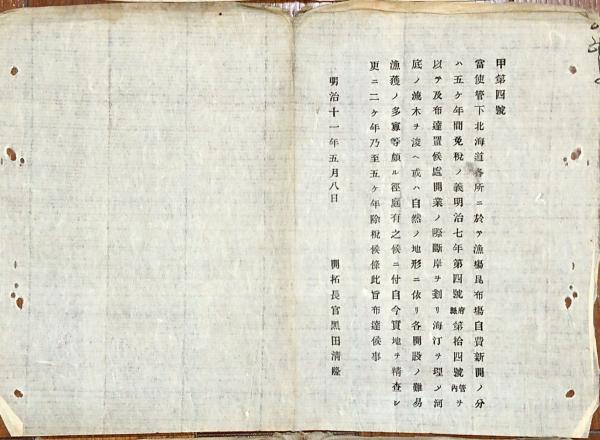 甲第四號
當使管下北海道各所ニ於テ漁場昆布場自費新開ノ分
ハ五ケ年間免稅ノ義明治七年第四號府縣第拾四號管內ヲ
以テ及布達置候處開業ノ際斷岸ヲ剗リ海汀ヲ理メ河
底ノ流木ヲ浚ヘ或ハ自然ノ地形ニ依リ各開設ノ難易
漁獲ノ多寡等頗ル徑庭有之候ニ付自今實地ヲ精査シ
更ニ二ケ年乃至五ケ年除稅候條此旨布達候事
明治十一年五月八日
開拓長官黑田淸隆